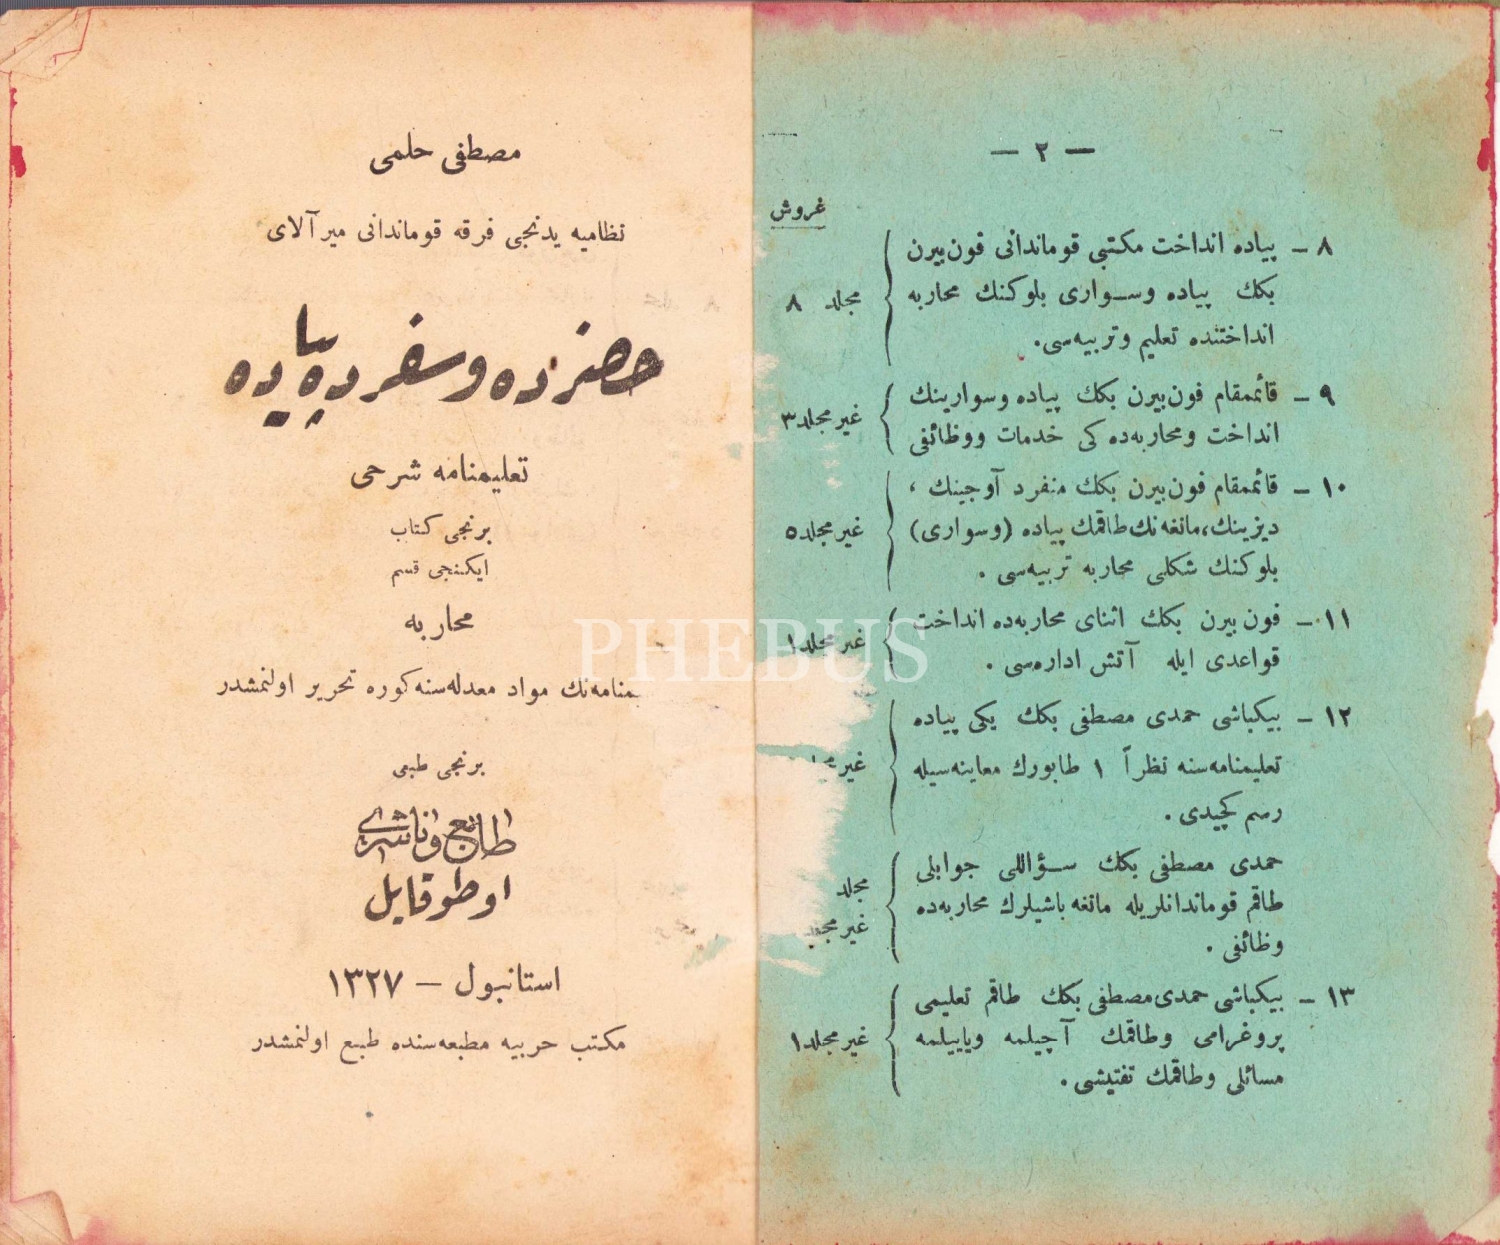 — ٢ —
غروش
٨ – پیاده انداخت مکتبی قوماندانی فون‌بیرن
بکك پیاده وسواری بلوکنك محاربه
انداختنده تعلیم وتربیه‌سی.
مجلد ٨
٩ – قائممقام فون‌بیرن بکك پیاده وسوارینك
انداخت ومحاربه‌ده کی خدمات ووظائفی
غیر مجلد ٣
١٠ – قائممقام فون‌بیرن بکك منفرد آوجینك ،
دیزینك، مانغه‌نك طاقمك پیاده (وسواری)
بلوکنك شکلی محاربه تربیه‌سی .
غیر مجلد ٥
١١ – فون بیرن بکك اثنای محاربه‌ده انداخت
قواعدی ایله آتش اداره‌سی .
غیر مجلد ١
١٢ – بیکباشی حمدی مصطفی بکك یکی پیاده
تعلیمنامه‌سنه نظراً ١ طابورك معاینه‌سیله
رسم کچیدی .
غیر
حمدی مصطفی بکك سؤاللی جوابلی
طاقم قوماندانلریله مانغه باشیلرك محاربه‌ده
وظائفی .
مجلد
غیر مجلد
١٣ – بیکباشی حمدی مصطفی بکك طاقم تعلیمی
پروغرامی وطاقمك آچیلمه ویاییلمه
مسائلی وطاقمك تفتیشی .
غیر مجلد ١
مصطفی حلمی
نظامیه یدنجی فرقه قوماندانی میرآلای
حضرده و سفرده پیاده
تعلیمنامه شرحی
برنجی کتاب
ایکنجی قسم
محاربه
یمنامه‌نك مواد معدله‌سنه کوره تحریر اولنمشدر
برنجی طبعی
طابع و ناشری
اوطو قایل
استانبول – ١٣٢٧
مکتب حربیه مطبعه‌سنده طبع اولنمشدر
PHEBUS